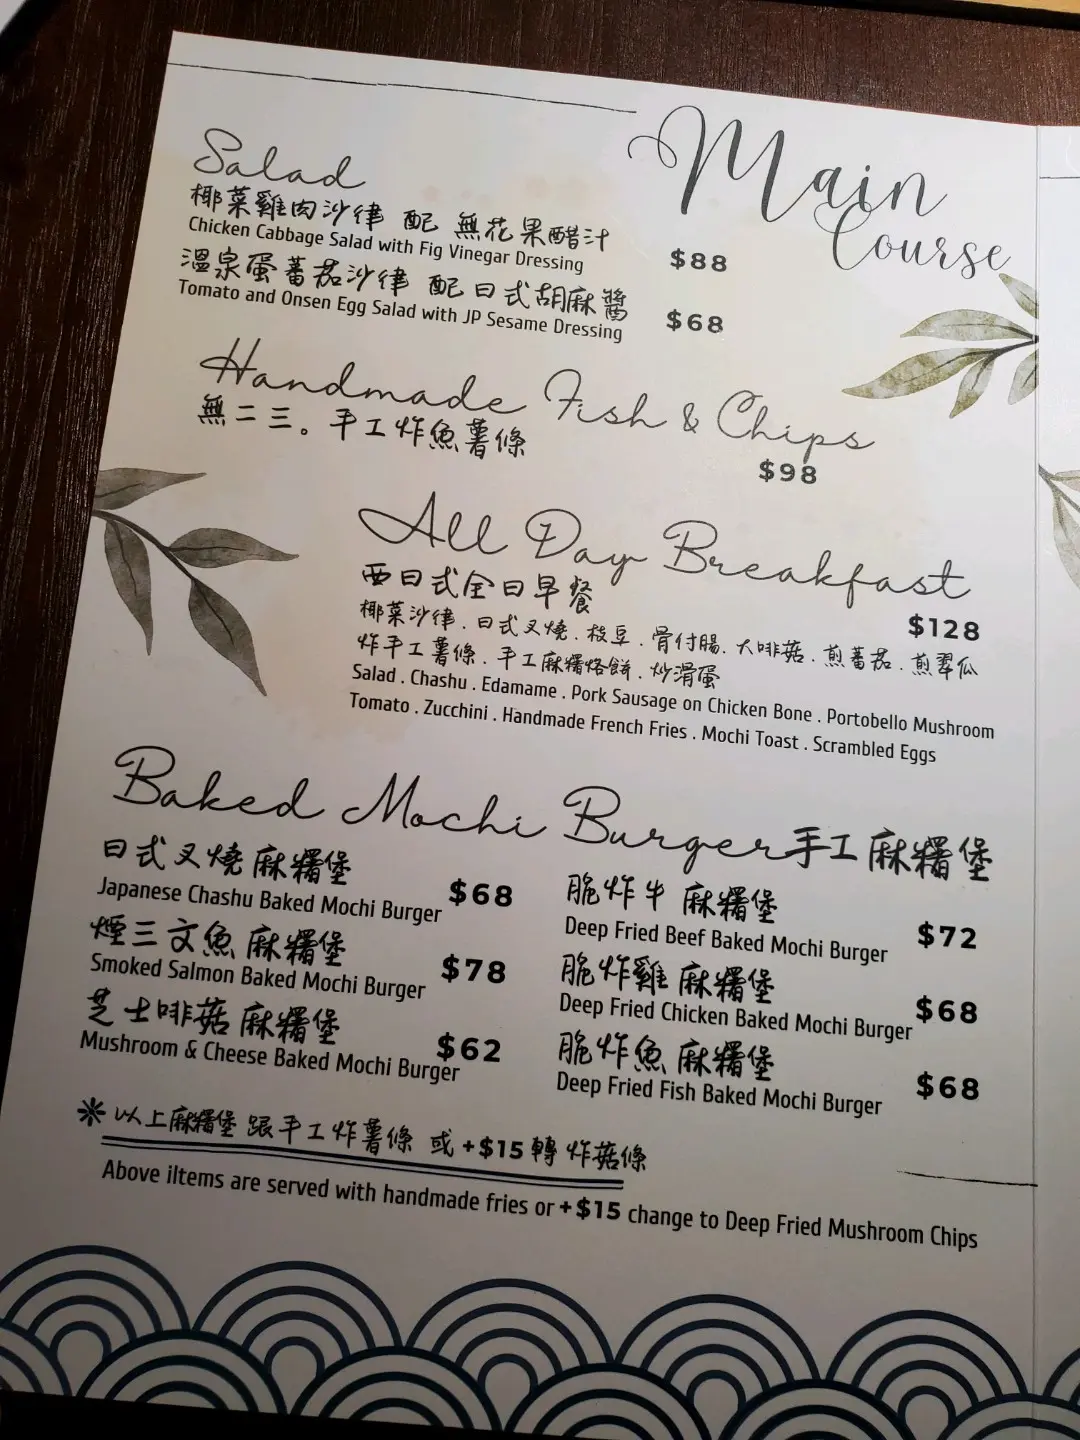 Main
Course
Salad
椰菜雞肉沙律 配 無花果醋汁
Chicken Cabbage Salad with Fig Vinegar Dressing
$88
溫泉蛋蕃茄沙律 配日式胡麻醬
Tomato and Onsen Egg Salad with JP Sesame Dressing
$68
Handmade Fish & Chips
無二三。手工炸魚薯條
$98
All Day Breakfast
西日式全日早餐
$128
椰菜沙律.日式叉燒.枝豆.骨付腸.大啡菇.煎蕃茄.煎翠瓜
炸手工薯條.手工麻糬烙餅.炒滑蛋
Salad . Chashu . Edamame . Pork Sausage on Chicken Bone . Portobello Mushroom
Tomato . Zucchini . Handmade French Fries . Mochi Toast . Scrambled Eggs
Baked Mochi Burger手工麻糬堡
日式叉燒麻糬堡
Japanese Chashu Baked Mochi Burger
$68
煙三文魚麻糬堡
Smoked Salmon Baked Mochi Burger
$78
芝士啡菇麻糬堡
Mushroom & Cheese Baked Mochi Burger
$62
脆炸牛麻糬堡
Deep Fried Beef Baked Mochi Burger
$72
脆炸雞麻糬堡
Deep Fried Chicken Baked Mochi Burger
$68
脆炸魚麻糬堡
Deep Fried Fish Baked Mochi Burger
$68
＊以上麻糬堡 跟手工炸薯條 或+$15轉炸菇條
Above iItems are served with handmade fries or +$15 change to Deep Fried Mushroom Chips